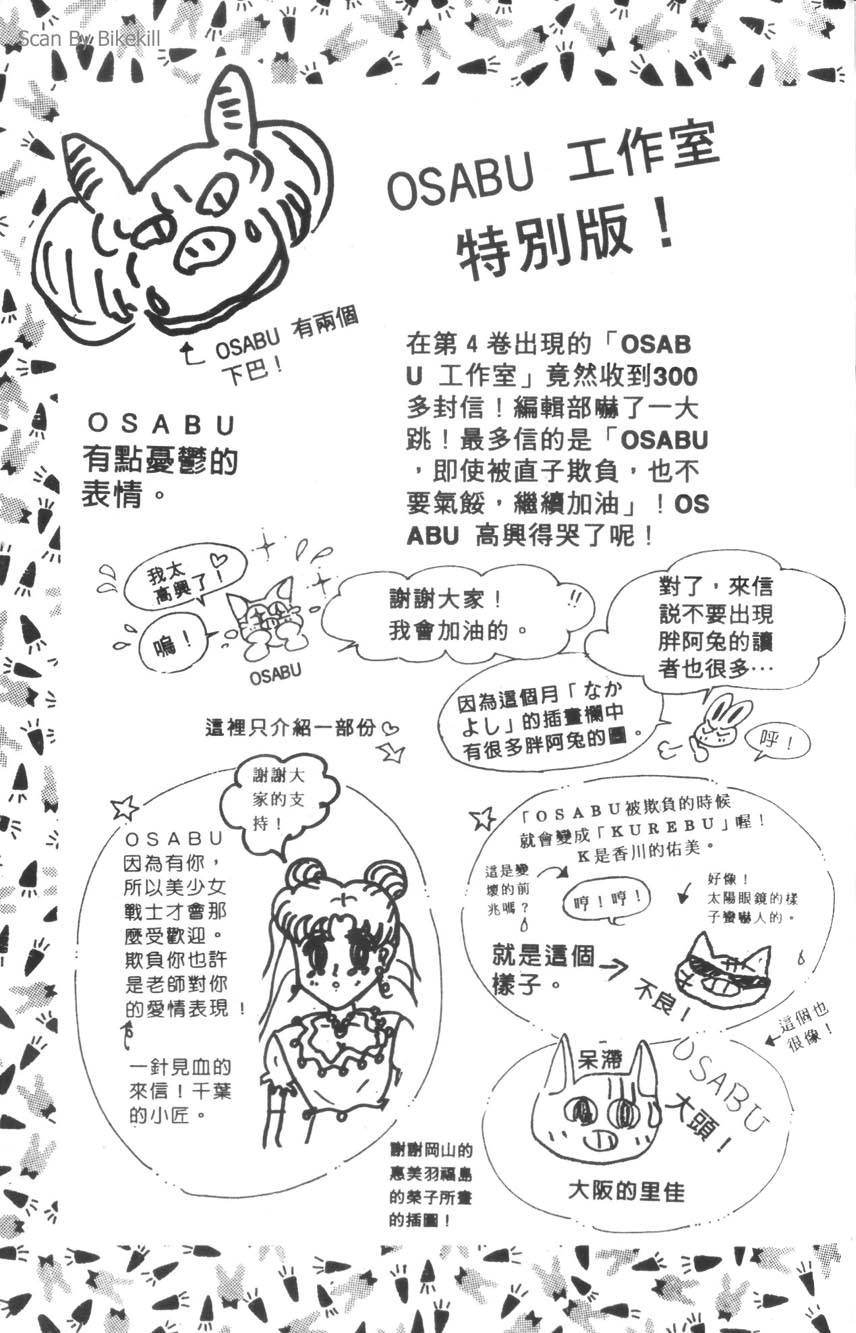 Scan By Bikekill
OSABU 工作室
特別版！
OSABU 有兩個
下巴！
ＯＳＡＢＵ
有點憂鬱的
表情。
在第 4 卷出現的「OSAB
U 工作室」竟然收到300
多封信！編輯部嚇了一大
跳！最多信的是「OSABU
，即使被直子欺負，也不
要氣餒，繼續加油」！OS
ABU 高興得哭了呢！
我太
高興了！
嗚！
OSABU
謝謝大家！
我會加油的。
!!
對了，來信
説不要出現
胖阿兔的讀
者也很多…
因為這個月「なか
よし」的插畫欄中
有很多胖阿兔的圖。
呼！
這裡只介紹一部份
謝謝大
家的支
持！
ＯＳＡＢＵ
因為有你，
所以美少女
戰士才會那
麼受歡迎。
欺負你也許
是老師對你
的愛情表現！
一針見血的
來信！千葉
的小匠。
謝謝岡山的
惠美羽福島
的榮子所畫
的插圖！
「ＯＳＡＢＵ被欺負的時候
就會變成「ＫＵＲＥＢＵ」喔！
Ｋ是香川的佑美。
這是變
壞的前
兆嗎？
哼！哼！
好像！
太陽眼鏡的樣
子蠻嚇人的。
就是這個
樣子。
不良！
這個也
很像！
呆滯
OSABU
大頭！
大阪的里佳